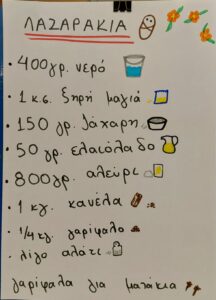 ΛΑΖΑΡΑΚΙΑ
• 400γρ. νερό
• 1 κ.σ. ξηρή μαγιά
• 150 γρ. ζάχαρη
• 50 γρ. ελαιόλαδο
• 800γρ. αλεύρι
• 1 κγ. κανέλα
• 1/4 κγ. γαρίφαλο
• λίγο αλάτι
γαρίφαλα για ματάκια